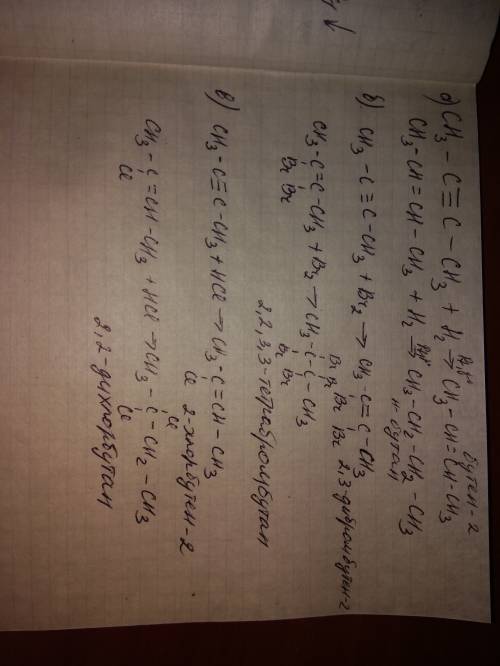 а) CH₃ - C ≡ C - CH₃ + H₂ → CH₃ - CH = CH - CH₃
бутен-2
CH₃ - CH = CH - CH₃ + H₂ → CH₃ - CH₂ - CH₂ - CH₃
н-бутан
б) CH₃ - C ≡ C - CH₃ + Br₂ → CH₃ - C = C - CH₃
Br Br 2,3-дибромбутен-2
CH₃ - C = C - CH₃ + Br₂ → CH₃ - C - C - CH₃
Br Br
Br Br
Br Br
2,2,3,3-тетрабромбутан
в) CH₃ - C ≡ C - CH₃ + HCl → CH₃ - C = CH - CH₃
Cl 2-хлорбутен-2
CH₃ - C = CH - CH₃ + HCl → CH₃ - C - CH₂ - CH₃
Cl
Cl
Cl
2,2-дихлорбутан